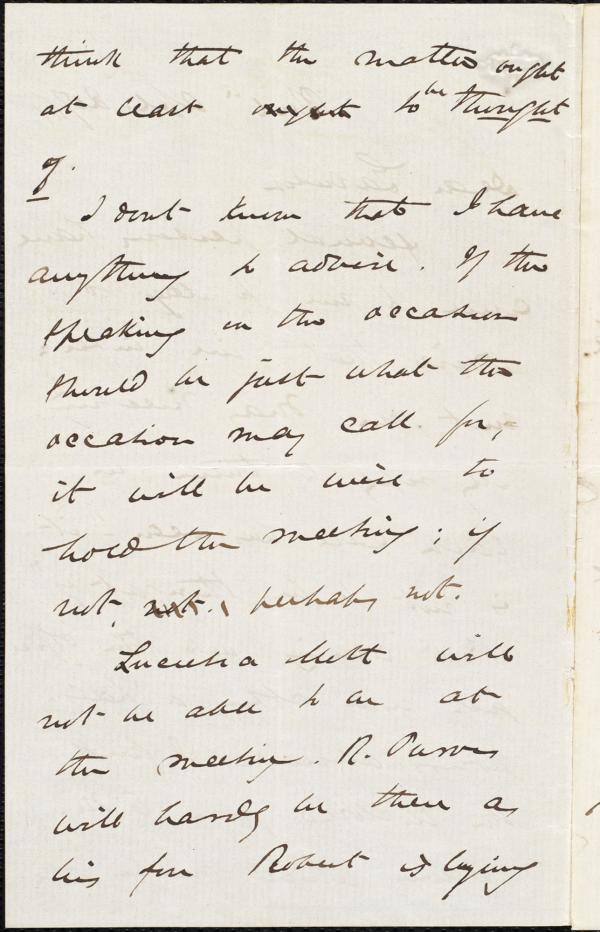 think that the matter ought
at least ought to be thought
of.
I dont know that I have
anything to advise. If the
speaking on the occasion
should be just what the
occasion may call for,
it will be wise to
hold the meeting; if
not, not. perhaps not.
Lucretia Mott will
not be able to be at
the meeting. R. Purvis
will hardly be there as
his son Robert is lying